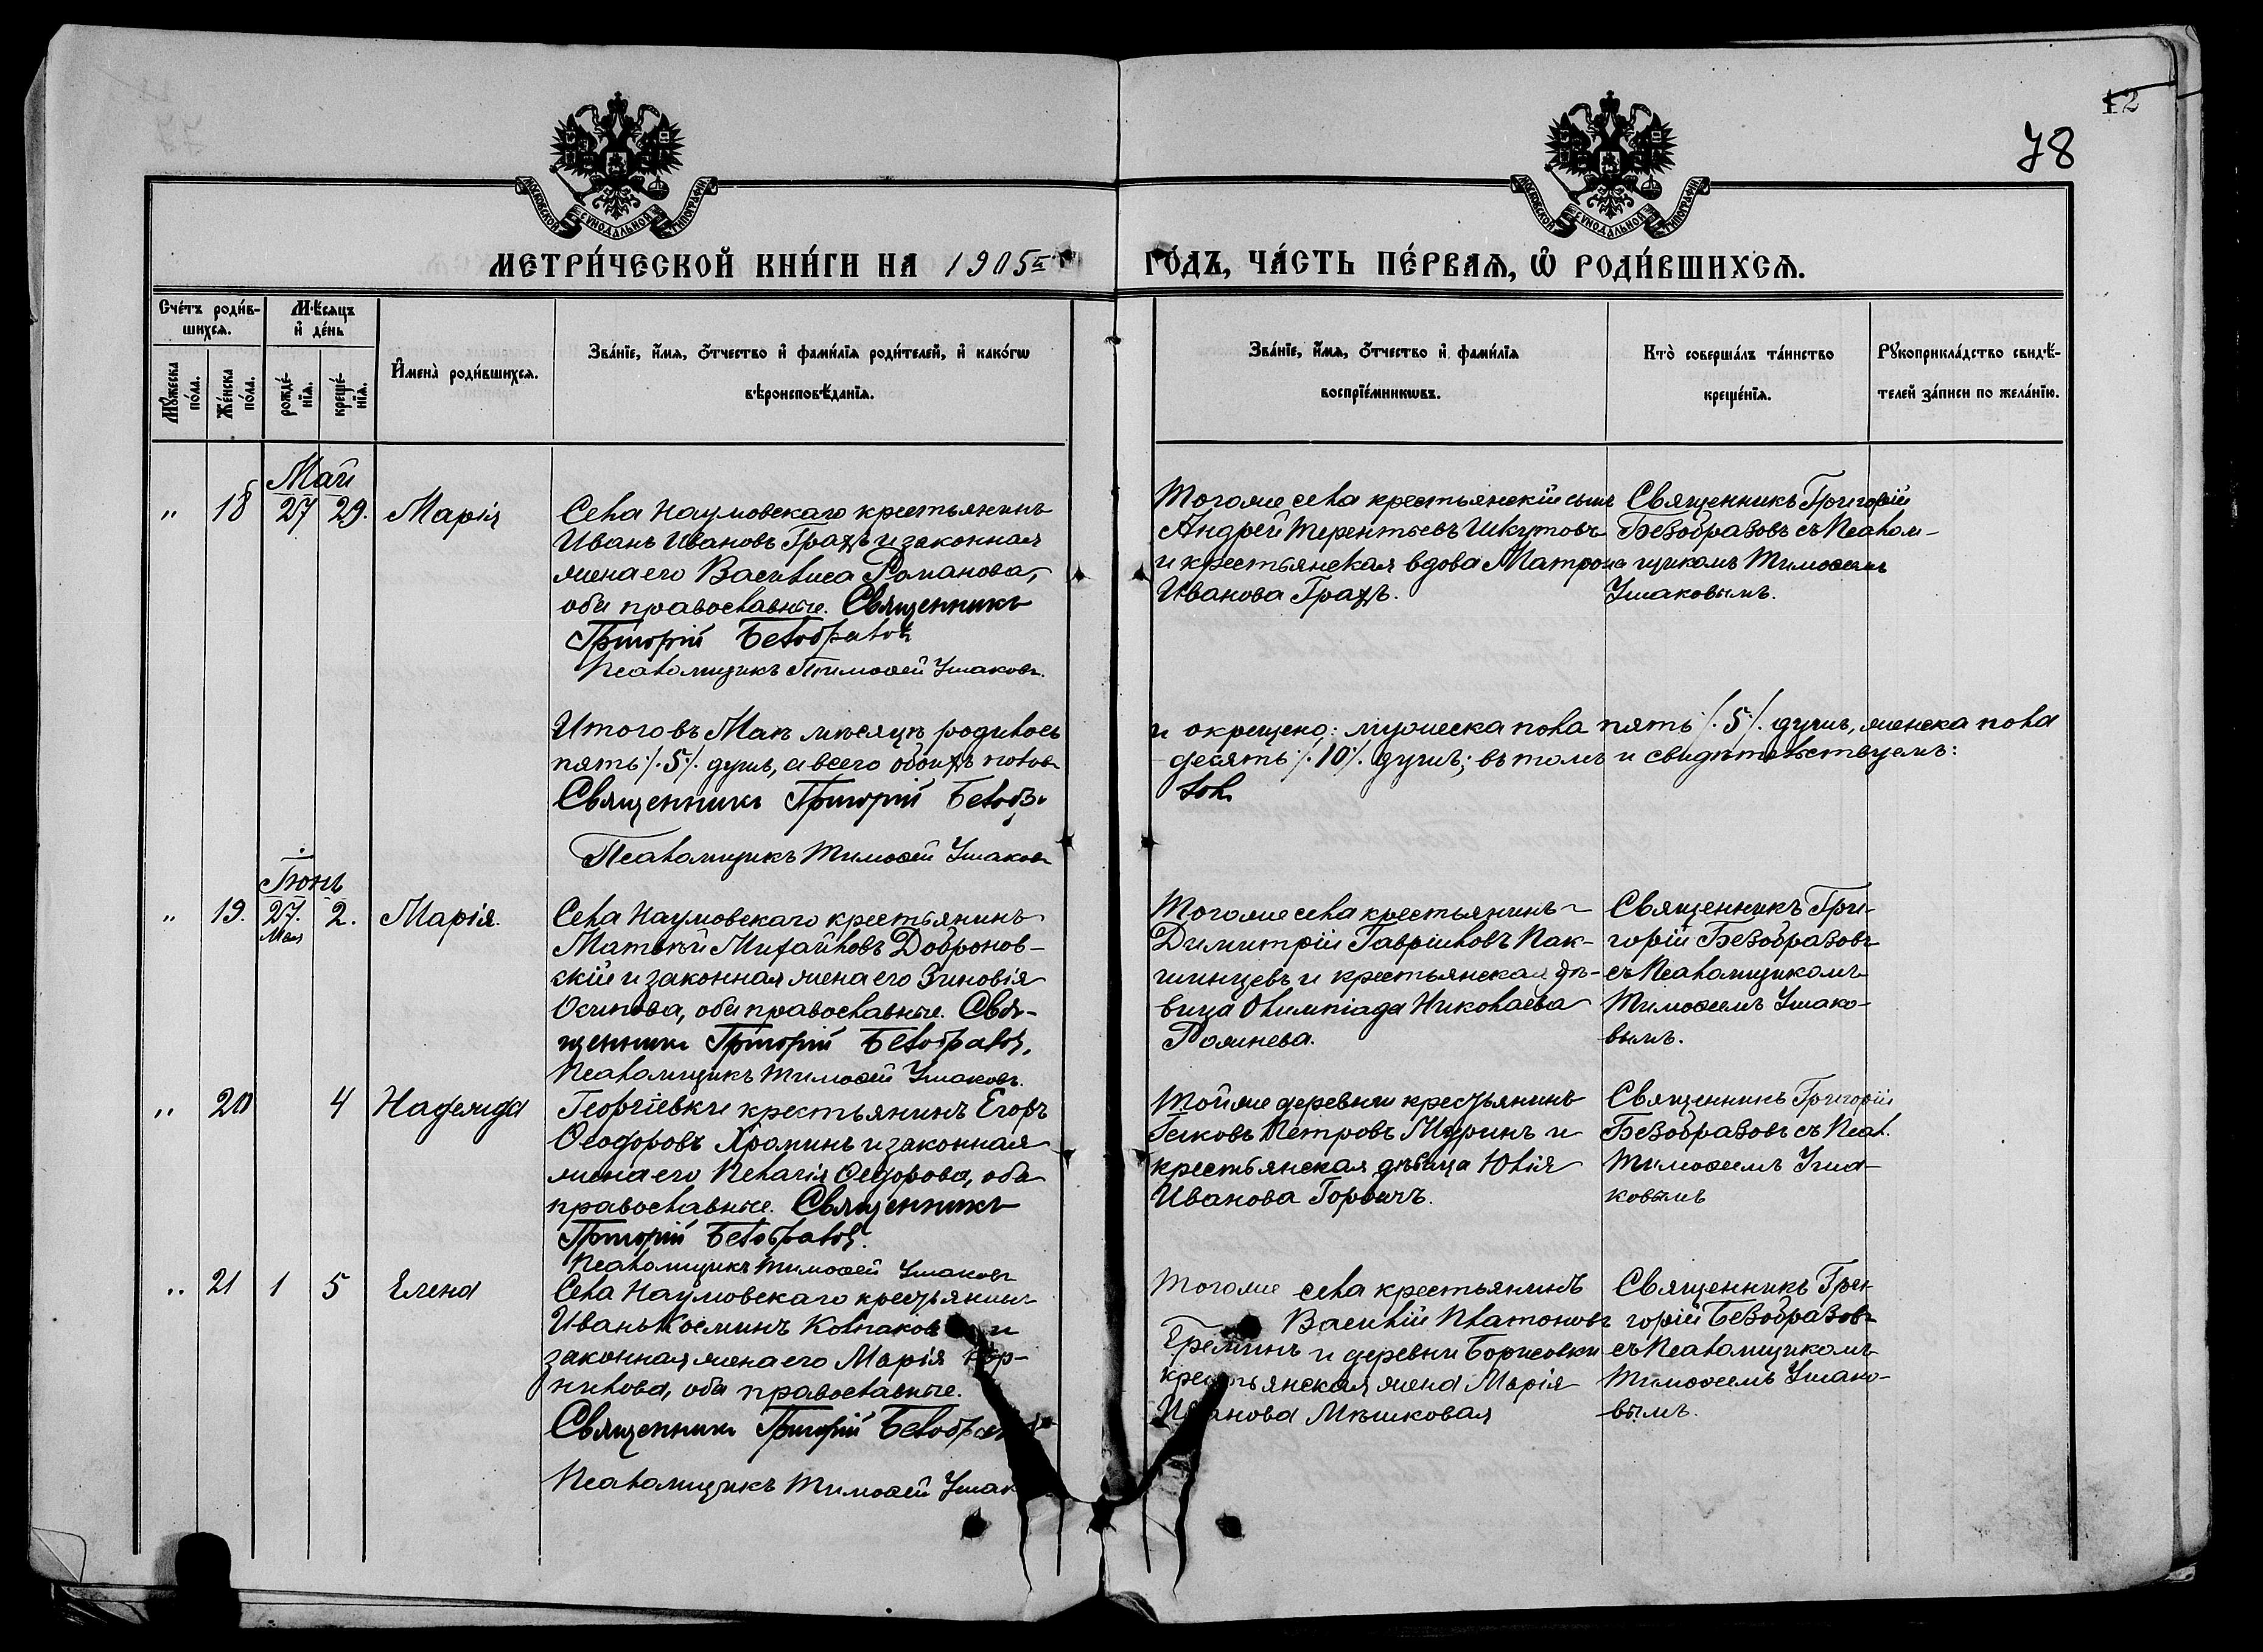 12
78
МОСКОВСКОЙ СѴНОДАЛЬНОЙ ТИПОГРАФІИ
МОСКОВСКОЙ СѴНОДАЛЬНОЙ ТИПОГРАФІИ
МЕТРИ́ЧЕСКОЙ КНИ́ГИ НА 1905й
ГО́ДЪ, ЧА́СТЬ ПЕ́РВАѦ, Ѽ РОДИ́ВШИХСѦ.
Сче́тъ роди́в-
шихсѧ.
Мꙋжеска
по́ла.
Же́нска
по́ла.
Мѣ́сѧцъ
и҆ де́нь
рожде́-
нїѧ.
креще́-
нїѧ.
И҆мена̀ роди́вшихсѧ.
Зва́нїе, и҆́мѧ, ѻ҆́тчество и҆ фами́лїѧ роди́телей, и҆ како́гѡ
вѣроисповѣ́данїѧ.
Зва́нїе, и҆́мѧ, ѻ҆́тчество и҆ фами́лїѧ
воспрїе́мникѡвъ.
Кто̀ соверша́лъ та́инство
креще́нїѧ.
Рꙋкоприкла́дство свидѣ́-
телей за́писи по жела́нїю.
Май
" 18 27 29. Марія
Села Наумовскаго крестьянинъ
Иванъ Ивановъ Грахъ и законная
жена его Василиса Романова,
оба православные. Священникъ
Григорій Безобразовъ
Псаломщикъ Тимофей Ушаковъ.
Тогоже села крестьянскій сынъ
Андрей Терентьевъ Шкутовъ
и крестьянская вдова Матрона
Иванова Грахъ.
Священникъ Григорій
Безобразовъ съ Псалом-
щикомъ Тимофеемъ
Ушаковымъ.
Итого въ Маѣ мѣсяцѣ родилось
и окрещено: мужеска пола пять /.5/. душъ, женска пола
пять /.5/. душъ, а всего обоихъ половъ
десять /.10/. душъ; въ томъ и свидѣтельствуемъ:
Священникъ Григорій Безоб
Псаломщикъ Тимофей Ушаковъ
Іюнь
" 19. 27. Мая 2. Марія.
Села Наумовскаго крестьянинъ
Матвѣй Михайловъ Добронов-
скій и законная жена его Зиновія
Осипова, оба православные. Свя-
щенникъ Григорій Безобразовъ.
Псаломщикъ Тимофей Ушаковъ.
Тогоже села крестьянинъ
Димитрій Гавріиловъ Пак-
шинцевъ и крестьянская дѣ-
вица Олимпіада Николаева
Рожнева.
Священникъ Гри-
горій Безобразовъ
съ Псаломщикомъ
Тимофеемъ Ушако-
вымъ.
" 20 4 Надежда
Георгіевки крестьянинъ Егоръ
Ѳеодоровъ Хроминъ и законная
жена его Пелагія Ѳедорова, оба
православные. Священникъ
Григорій Безобразовъ.
Псаломщикъ Тимофей Ушаковъ
Тойже деревни крестьянинъ
Іаковъ Петровъ и
крестьянская дѣвица Юлія
Иванова
Священникъ Григорій
Безобразовъ съ Псал.
Тимофеемъ Уша-
ковымъ
" 21 1 5 Елена
Села Наумовскаго крестьянинъ
Иванъ Косминъ Колпаков и
законная жена его Марія Кор-
нилова, оба православные.
Священникъ Григорій Безобра
Псаломщикъ Тимофей Ушак
Тогоже села крестьянинъ
Василій Платоновъ
Ереминъ и деревни Борисовки
крестьянская жена Марія
Иванова Мѣшковая
Священникъ Гри-
горій Безобразовъ
съ Псаломщикомъ
Тимофеемъ Ушако-
вымъ.